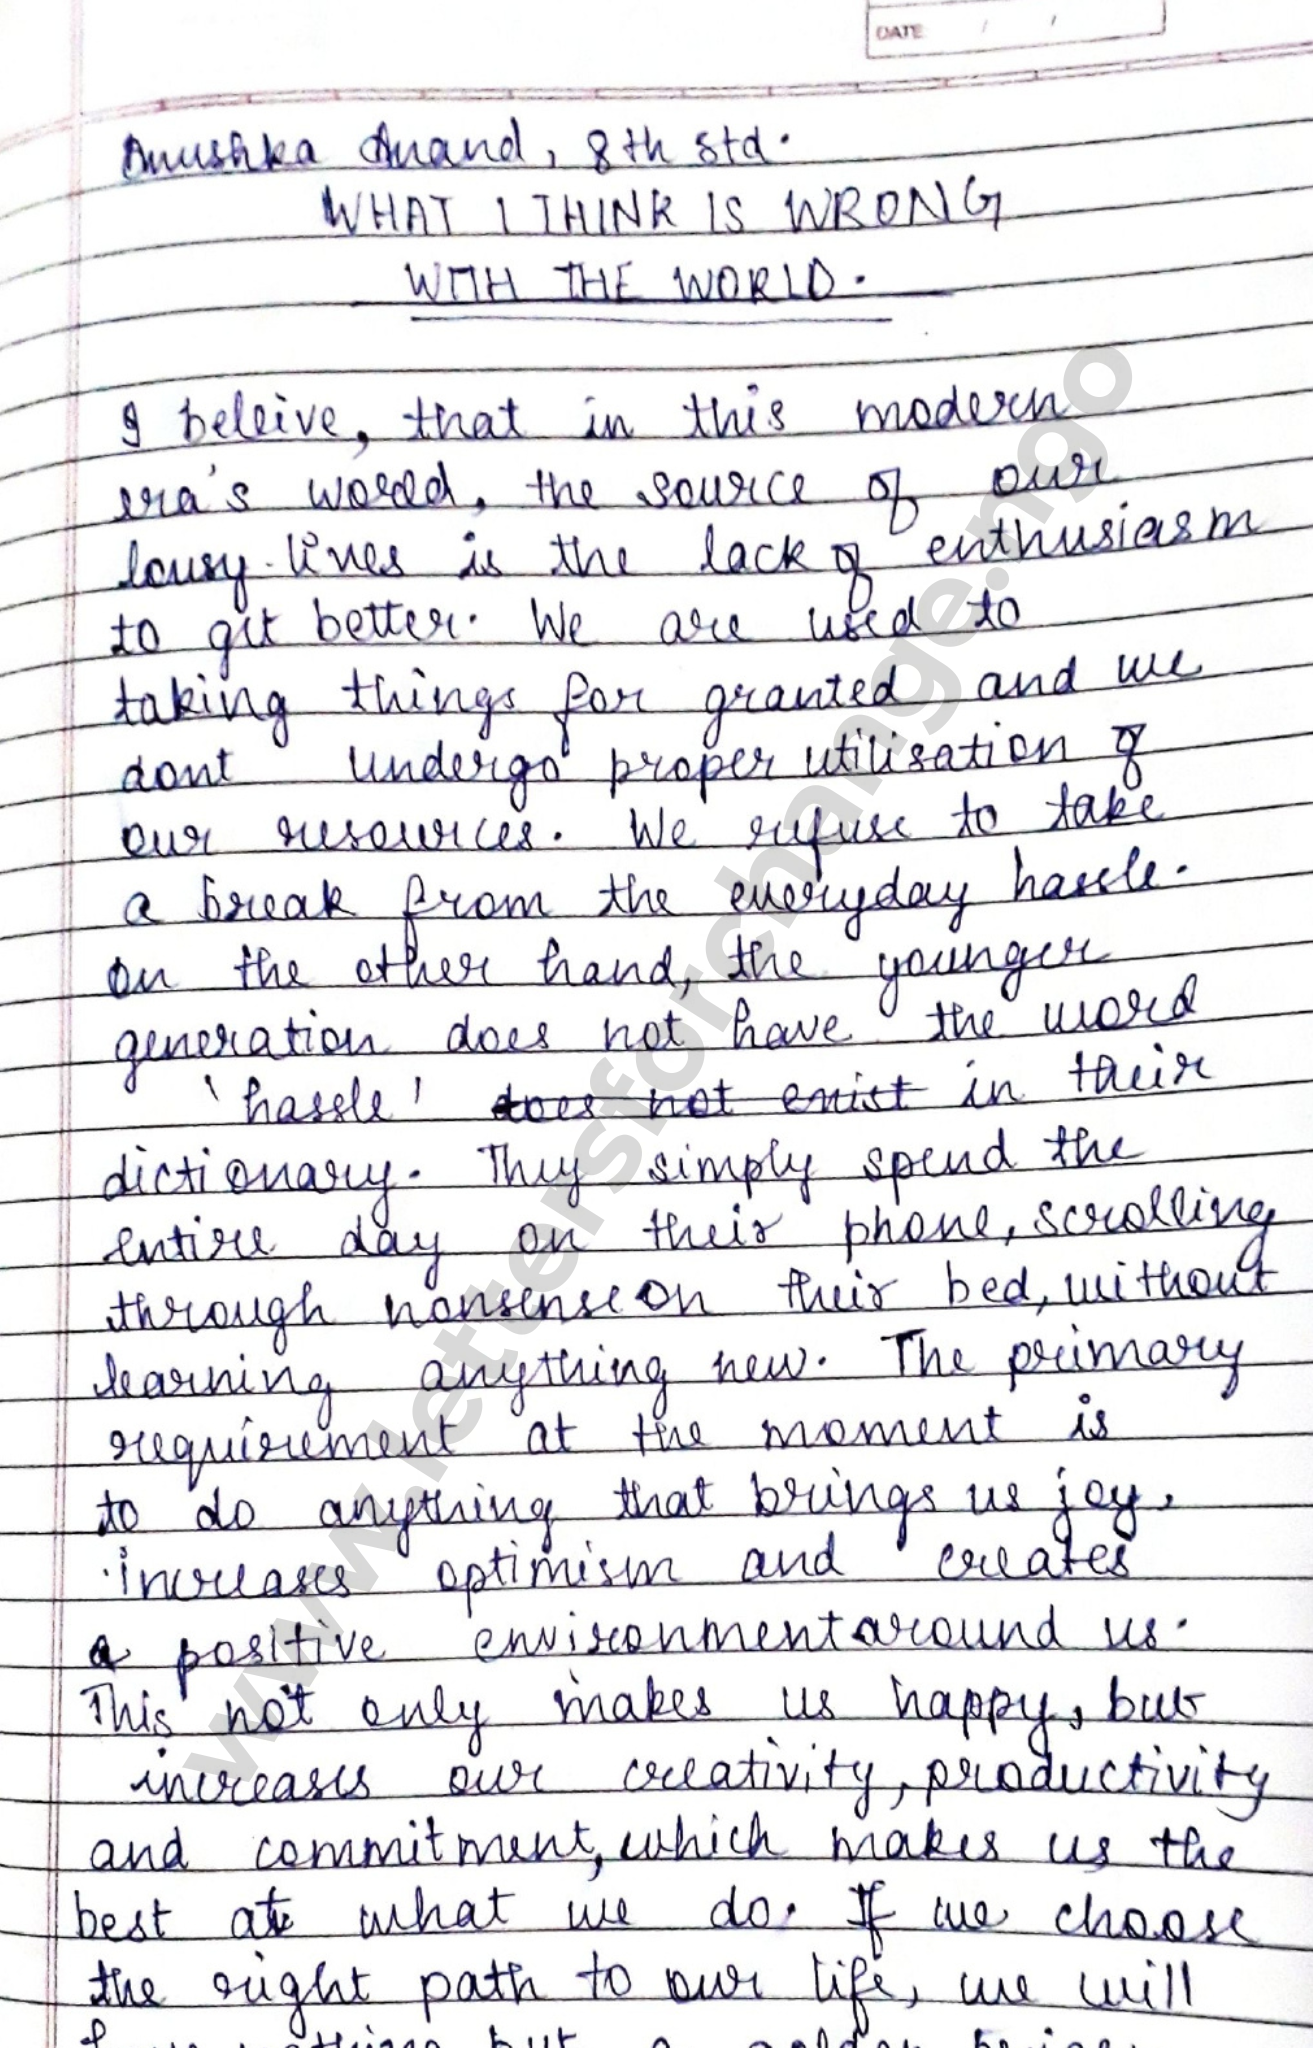 DATE / /
Anushka Anand, 8th std.
WHAT I THINK IS WRONG
WITH THE WORLD.
I beleive, that in this modern
era's world, the source of our
lousy lives is the lack of enthusiasm
to get better. We are used to
taking things for granted and we
dont undergo proper utilisation of
our resources. We refuse to take
a break from the everyday hassle.
On the other hand, the younger
generation does not have the word
'hassle' does not exist in their
dictionary. They simply spend the
entire day on their phone, scrolling
through nonsense on their bed, without
learning anything new. The primary
requirement at the moment is
to do anything that brings us joy,
increases optimism and creates
a positive environment around us.
This not only makes us happy, but
increases our creativity, productivity
and commitment, which makes us the
best at what we do. If we choose
the right path to our life, we will
but a golden
www.lettersforchange.ngo